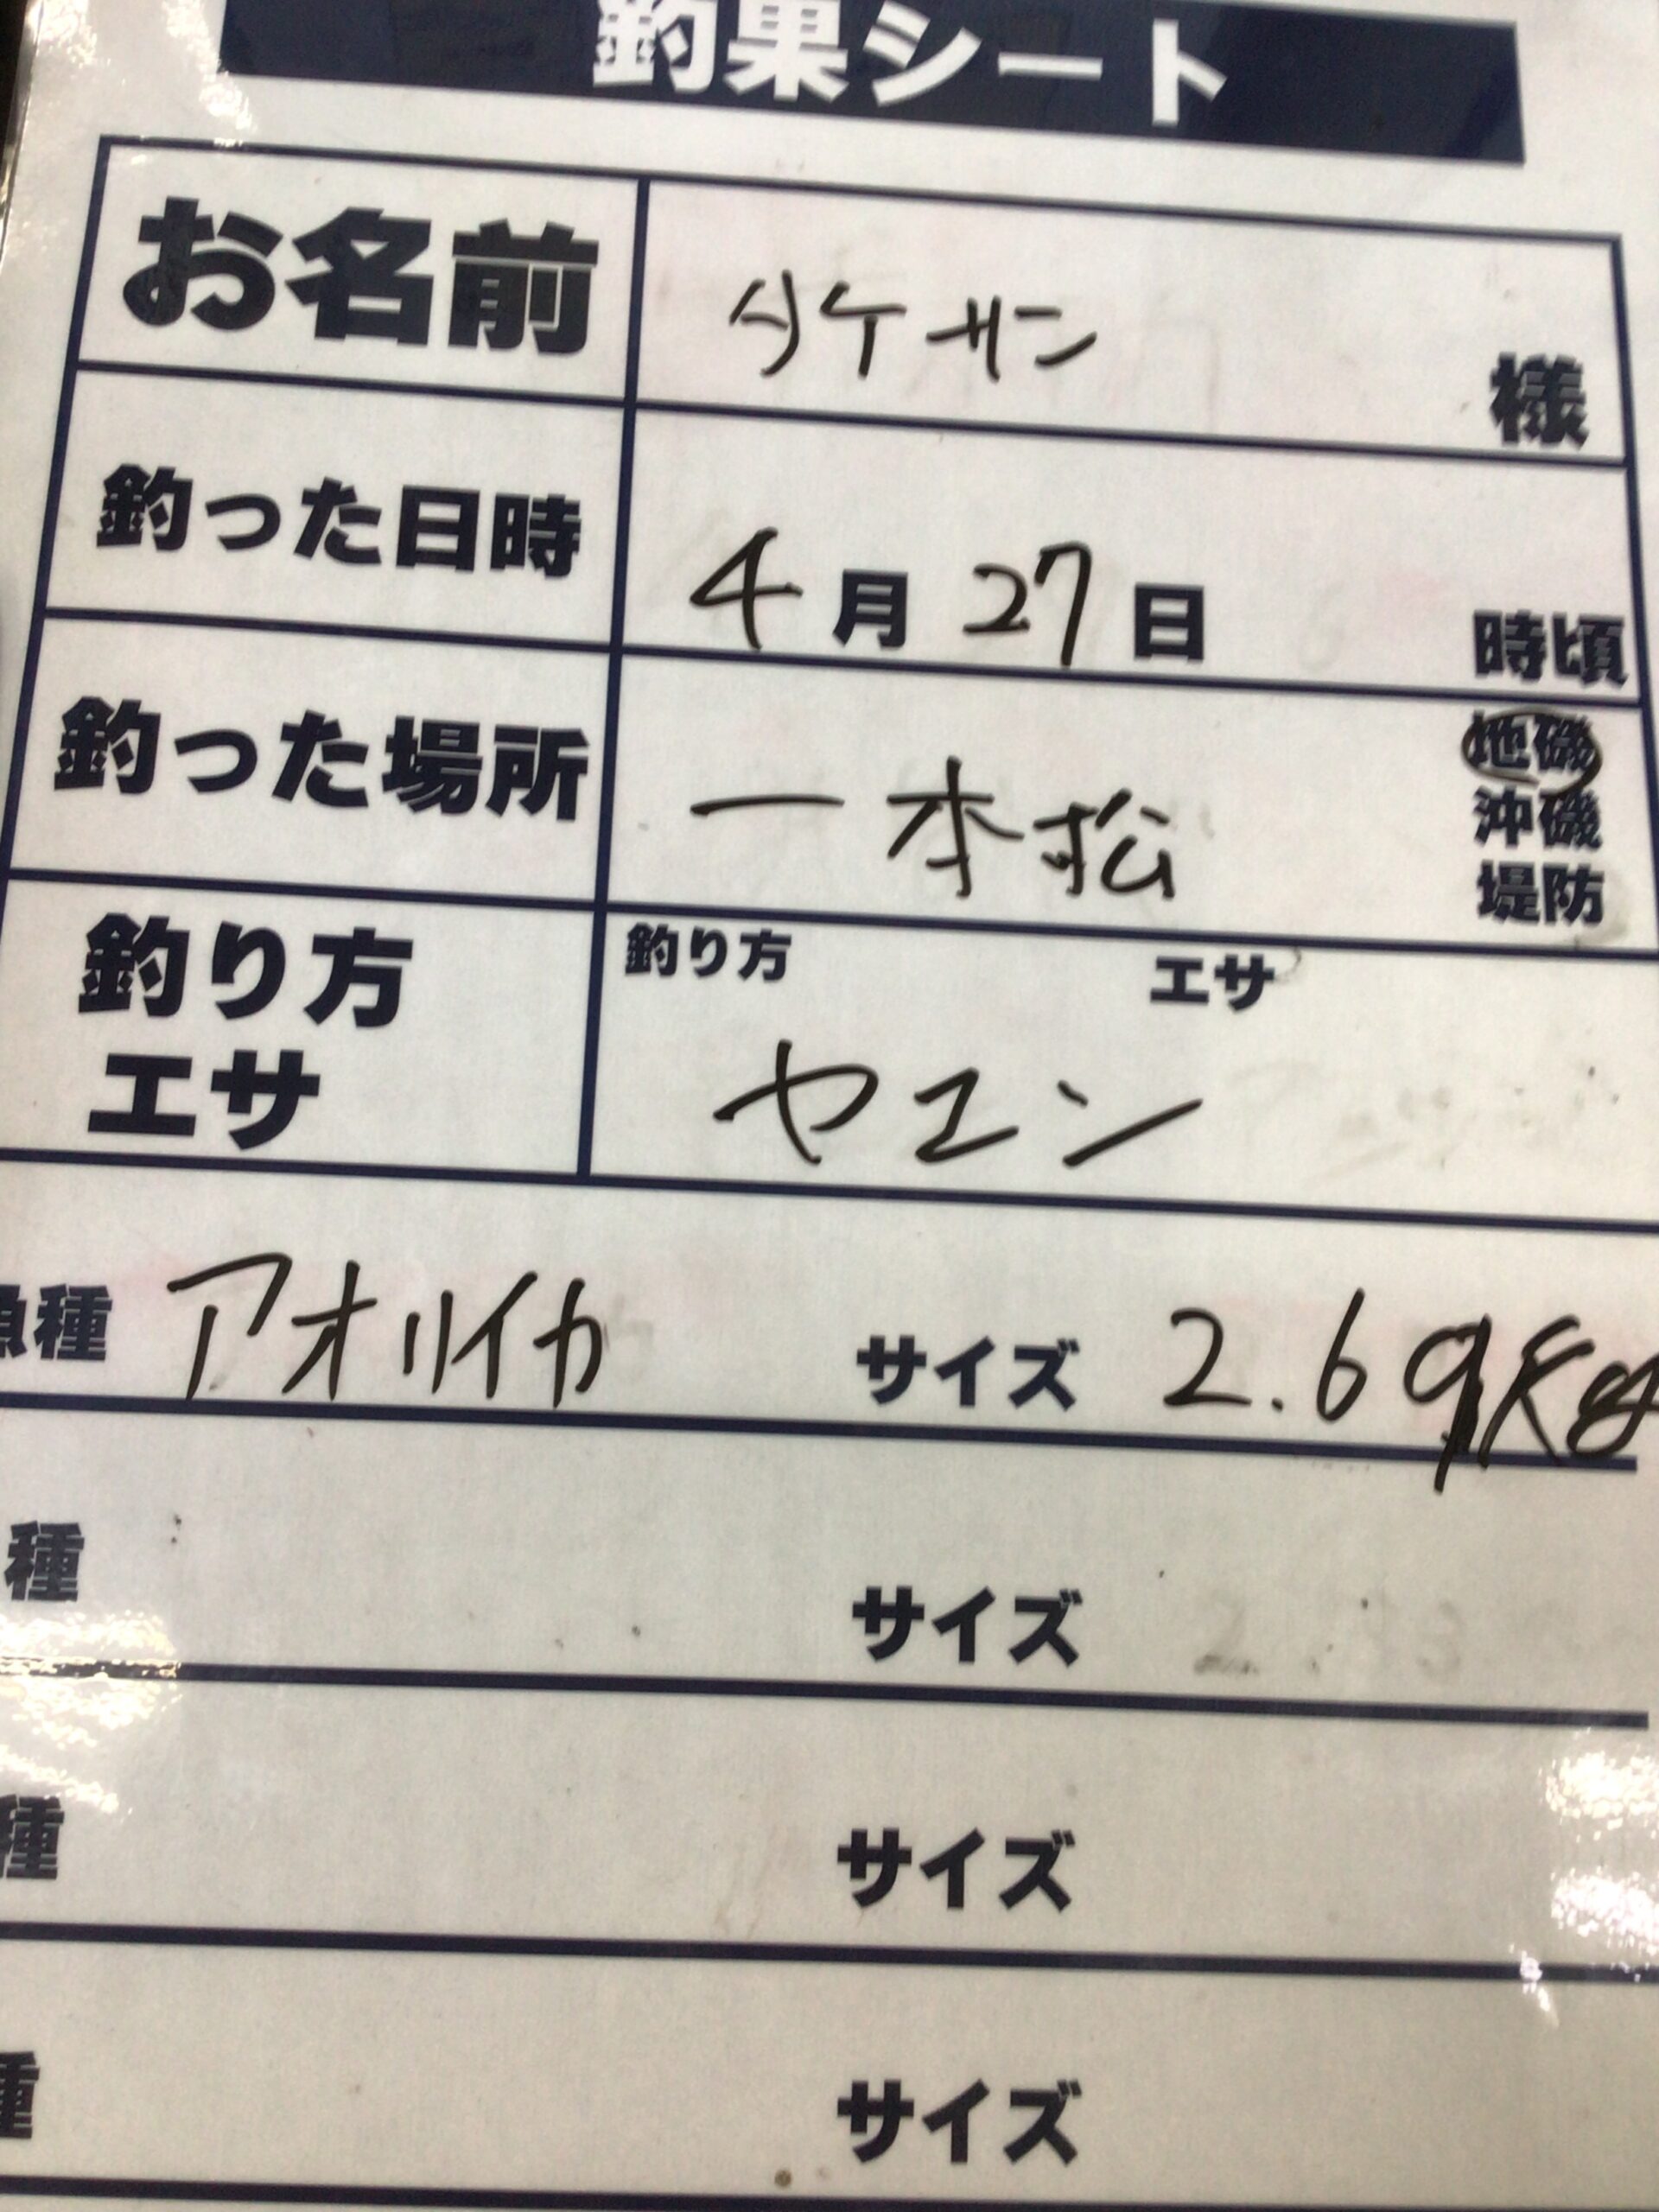 釣果シート
お名前 タケサン 様
釣った日時 4月27日 時頃
釣った場所 一本松 地磯 沖磯 堤防
釣り方 エサ 釣り方 エサ
ヤエン
魚種 アオリイカ サイズ 2.69kg
種 サイズ
種 サイズ
種 サイズ